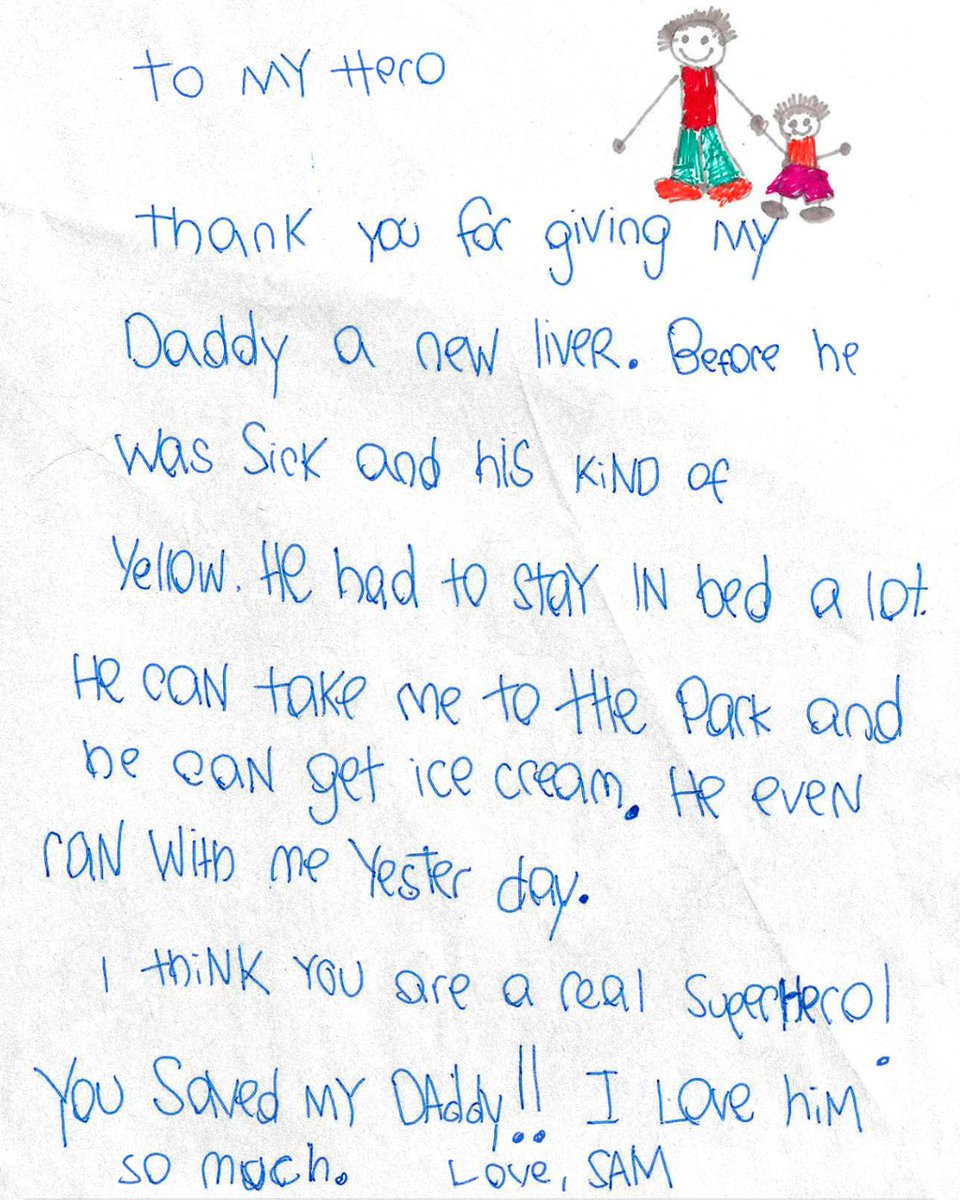 To MY Hero
Thank you for giving MY
Daddy a new liveR. Before he
was Sick and his KiND of
Yellow. He had to stay IN bed a lot.
He caN take me to tHe Park and
he caN get ice cream. He eveN
raN with me Yester day.
I thiNK YOU are a real SuperHero!
You Saved MY DAddy!! I Love hiM
so much. Love, SAM